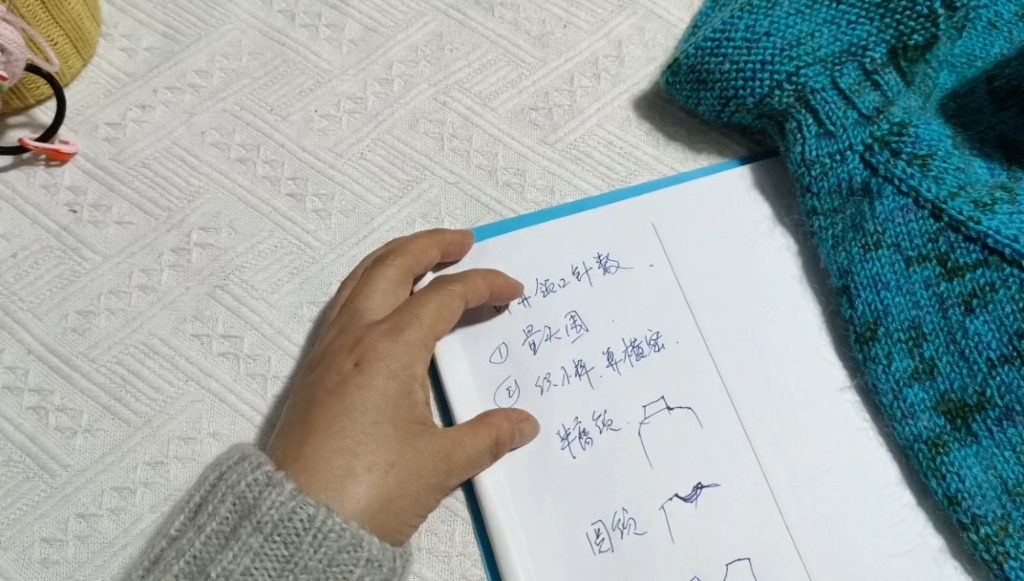 计算领口针数.
① 量头围.
② 织小样.算横密.
半高领.
圆领